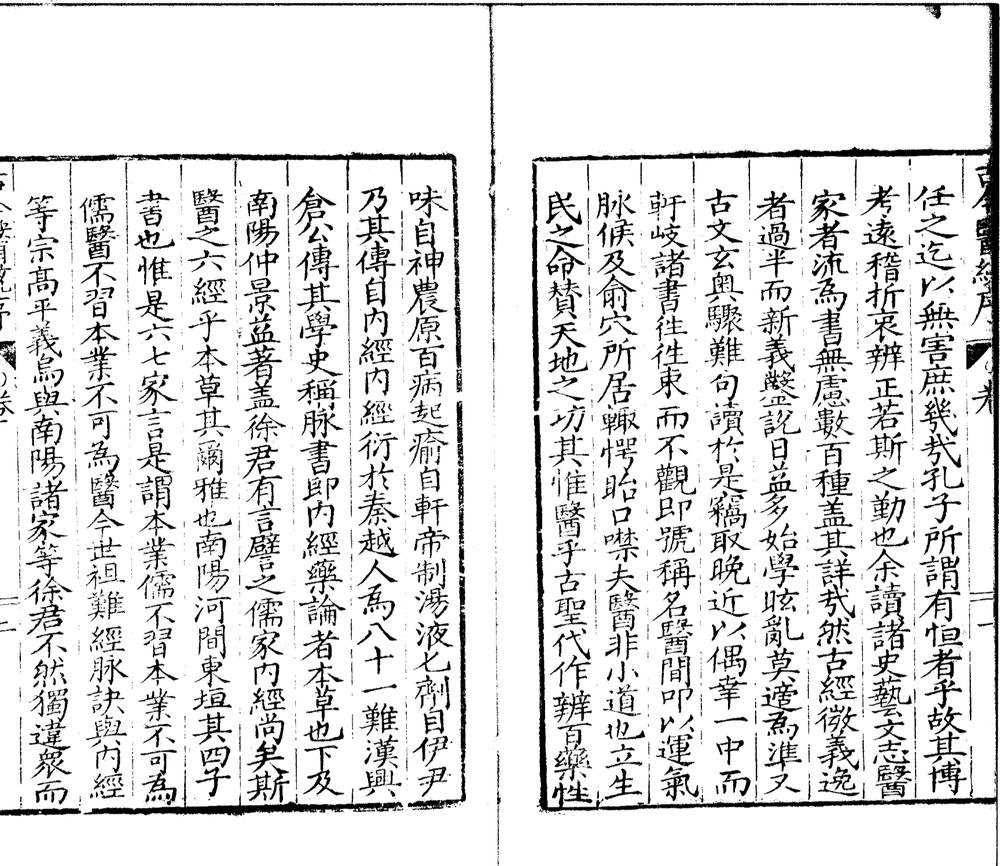 古今醫統序
任之迄以無害庶幾㦲孔子所謂有恒者乎故其博
考遠稽折衷辨正若斯之勤也余讀諸史藝文志醫
家者流為書無慮數百種盖其詳㦲然古經微義逸
者過半而新義盤說日益多始學眩亂莫適為準又
古文玄奧驟難句讀於是竊取晚近以偶幸一中而
軒岐諸書徃徃束而不觀即號稱名醫間叩以運氣
脉候及俞穴所居輙愕眙口噤夫醫非小道也立生
民之命賛天地之功其惟醫乎古聖代作辨百藥性
味自神農原百病起瘉自軒帝制湯液七劑自伊尹
乃其傳自內經內經衍於秦越人為八十一難漢興
倉公傳其學史稱脉書即內經藥論者本草也下及
南陽仲景益著盖徐君有言譬之儒家內經尚矣斯
醫之六經乎本草其爾雅也南陽河間東垣其四子
書也惟是六七家言是謂本業儒不習本業不可為
儒醫不習本業不可為醫今世祖難經脉訣與內經
等宗高平義烏與南陽諸家等徐君不然獨違衆而